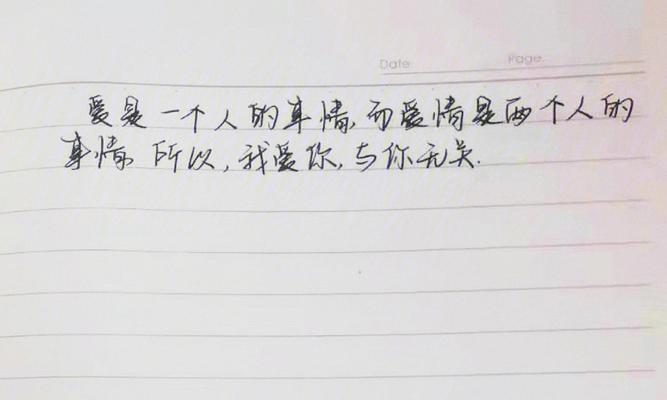 Date: Page:
爱是一个人的事情,而爱情是两个人的
事情, 所以,我爱你,与你无关.